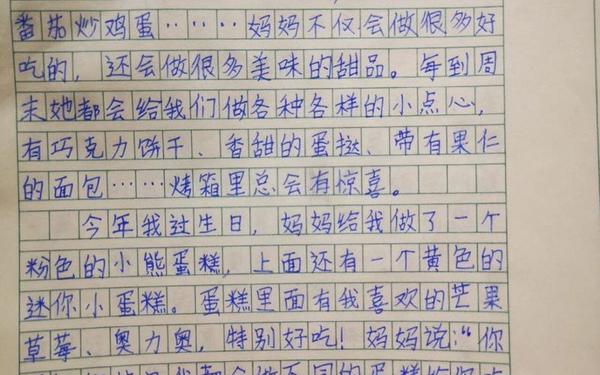 番茄炒鸡蛋……妈妈不仅会做很多好
吃的，还会做很多美味的甜品。每到周
末她都会给我们做各种各样的小点心，
有巧克力饼干、香甜的蛋挞、带有果仁
的面包……烤箱里总会有惊喜。
今年我过生日，妈妈给我做了一个
粉色的小熊蛋糕，上面还有一个黄色的
迷你小蛋糕。蛋糕里面有我喜欢的芒果
草莓、奥力奥，特别好吃！妈妈说：“你
我都会做不同的蛋糕给你